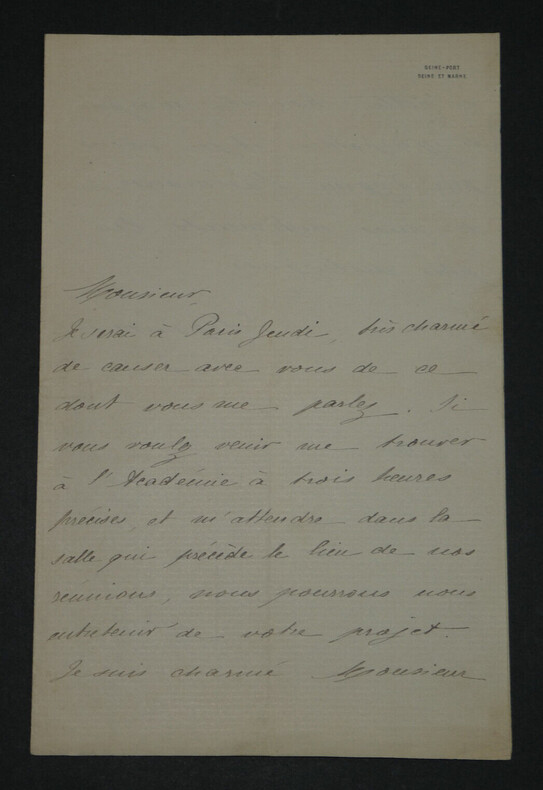 SEINE-PORT
SEINE ET MARNE
Monsieur,
Je serai à Paris Jeudi, très charmé
de causer avec vous de ce
dont vous me parlez. Si
vous voulez venir me trouver
à l'Académie à trois heures
précises, et m'attendre dans la
salle qui précède le lieu de nos
réunions, nous pourrons nous
entretenir de votre projet.
Je suis charmé Monsieur